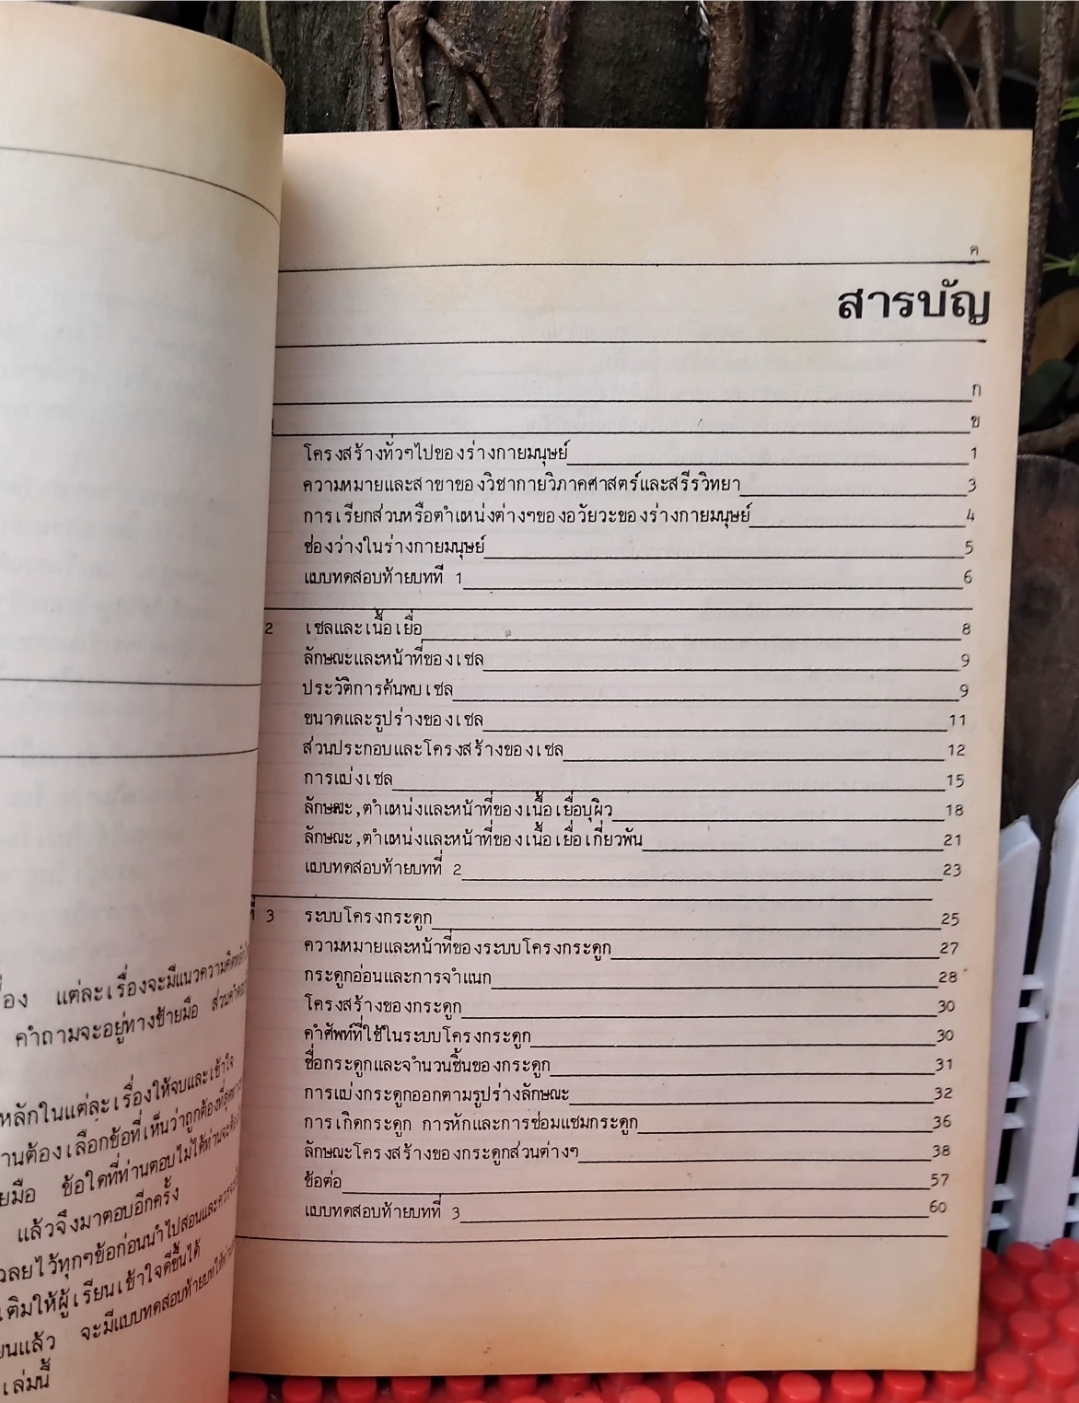 ค
สารบัญ
ก
ข
โครงสร้างทั่วๆไปของร่างกายมนุษย์ 1
ความหมายและสาขาของวิชากายวิภาคศาสตร์และสรีรวิทยา 3
การเรียกส่วนหรือตำแหน่งต่างๆของอวัยวะของร่างกายมนุษย์ 4
ช่องว่างในร่างกายมนุษย์ 5
แบบทดสอบท้ายบทที่ 1 6
2 เซลและเนื้อเยื่อ 8
ลักษณะและหน้าที่ของเซล 9
ประวัติการค้นพบเซล 9
ขนาดและรูปร่างของเซล 11
ส่วนประกอบและโครงสร้างของเซล 12
การแบ่งเซล 15
ลักษณะ,ตำแหน่งและหน้าที่ของเนื้อเยื่อบุผิว 18
ลักษณะ,ตำแหน่งและหน้าที่ของเนื้อเยื่อเกี่ยวพัน 21
แบบทดสอบท้ายบทที่ 2 23
ที่ 3 ระบบโครงกระดูก 25
ความหมายและหน้าที่ของระบบโครงกระดูก 27
กระดูกอ่อนและการจำแนก 28
โครงสร้างของกระดูก 30
คำศัพท์ที่ใช้ในระบบโครงกระดูก 30
ชื่อกระดูกและจำนวนชิ้นของกระดูก 31
การแบ่งกระดูกออกตามรูปร่างลักษณะ 32
การเกิดกระดูก การหักและการซ่อมแซมกระดูก 36
ลักษณะโครงสร้างของกระดูกส่วนต่างๆ 38
ข้อต่อ 57
แบบทดสอบท้ายบทที่ 3 60
แต่ละเรื่องจะมีแนวความคิดหลัก
คำถามจะอยู่ทางซ้ายมือ
หลักในแต่ละเรื่องให้จบและเข้าใจ
ต้องเลือกข้อที่เห็นว่าถูกต้องที่สุด
ข้อใดที่ท่านตอบไม่ได้
แล้วจึงมาตอบอีกครั้ง
ไว้ทุกๆข้อก่อนนำไปสอน
เติมให้ผู้เรียนเข้าใจดีขึ้นได้
แล้ว จะมีแบบทดสอบท้ายบท
เล่มนี้